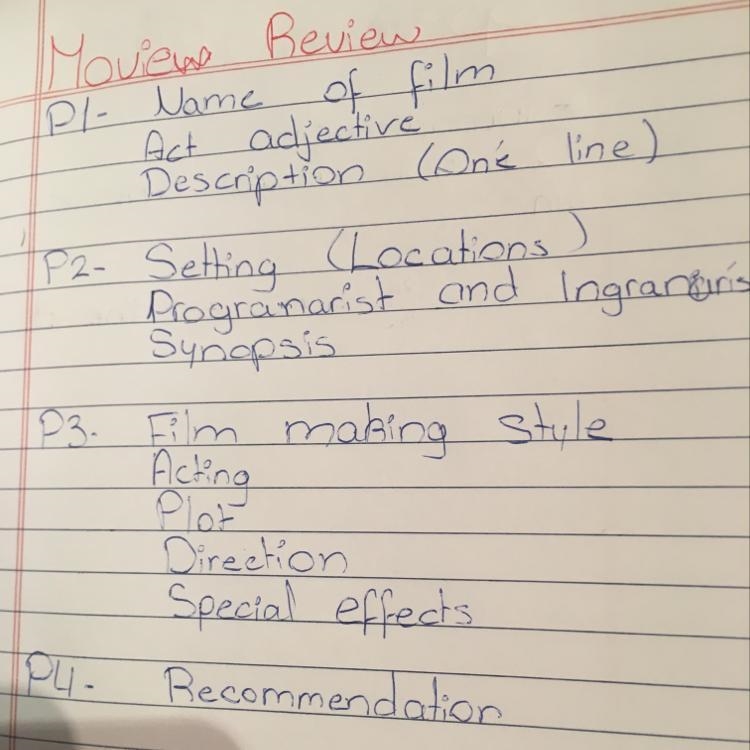 Moview Review
P1- Name of film
Act adjective
Description (One line)
P2- Setting (Locations)
Programarist and
Synopsis
P3- Film making style
Acting
Plot
Direction
Special effects
P4- Recommendation